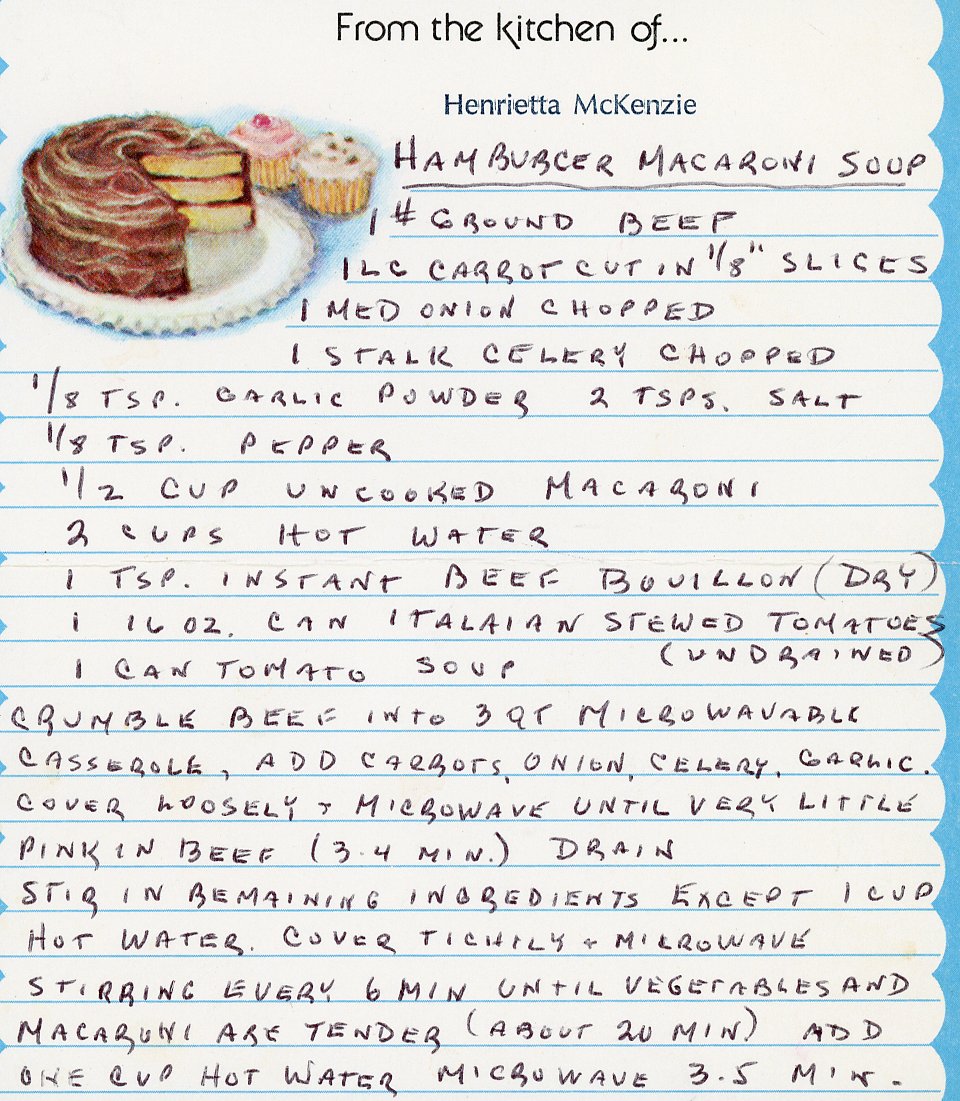 From the kitchen of...
Henrietta McKenzie
HAMBURGER MACARONI SOUP
1 # GROUND BEEF
1 LG CARROT CUT IN 1/8" SLICES
1 MED ONION CHOPPED
1 STALK CELERY CHOPPED
1/8 TSP. GARLIC POWDER 2 TSPS. SALT
1/8 TSP. PEPPER
1/2 CUP UNCOOKED MACARONI
2 CUPS HOT WATER
1 TSP. INSTANT BEEF BOUILLON (DRY)
1 16 OZ. CAN ITALAIAN STEWED TOMATOES
(UNDRAINED)
1 CAN TOMATO SOUP
CRUMBLE BEEF INTO 3 QT MICROWAVABLE
CASSEROLE, ADD CARROTS, ONION, CELERY, GARLIC.
COVER LOOSELY + MICROWAVE UNTIL VERY LITTLE
PINK IN BEEF (3-4 MIN.) DRAIN
STIR IN REMAINING INGREDIENTS EXCEPT 1 CUP
HOT WATER. COVER TIGHTLY + MICROWAVE
STIRRING EVERY 6 MIN UNTIL VEGETABLES AND
MACARONI ARE TENDER (ABOUT 20 MIN) ADD
ONE CUP HOT WATER MICROWAVE 3.5 MIN.